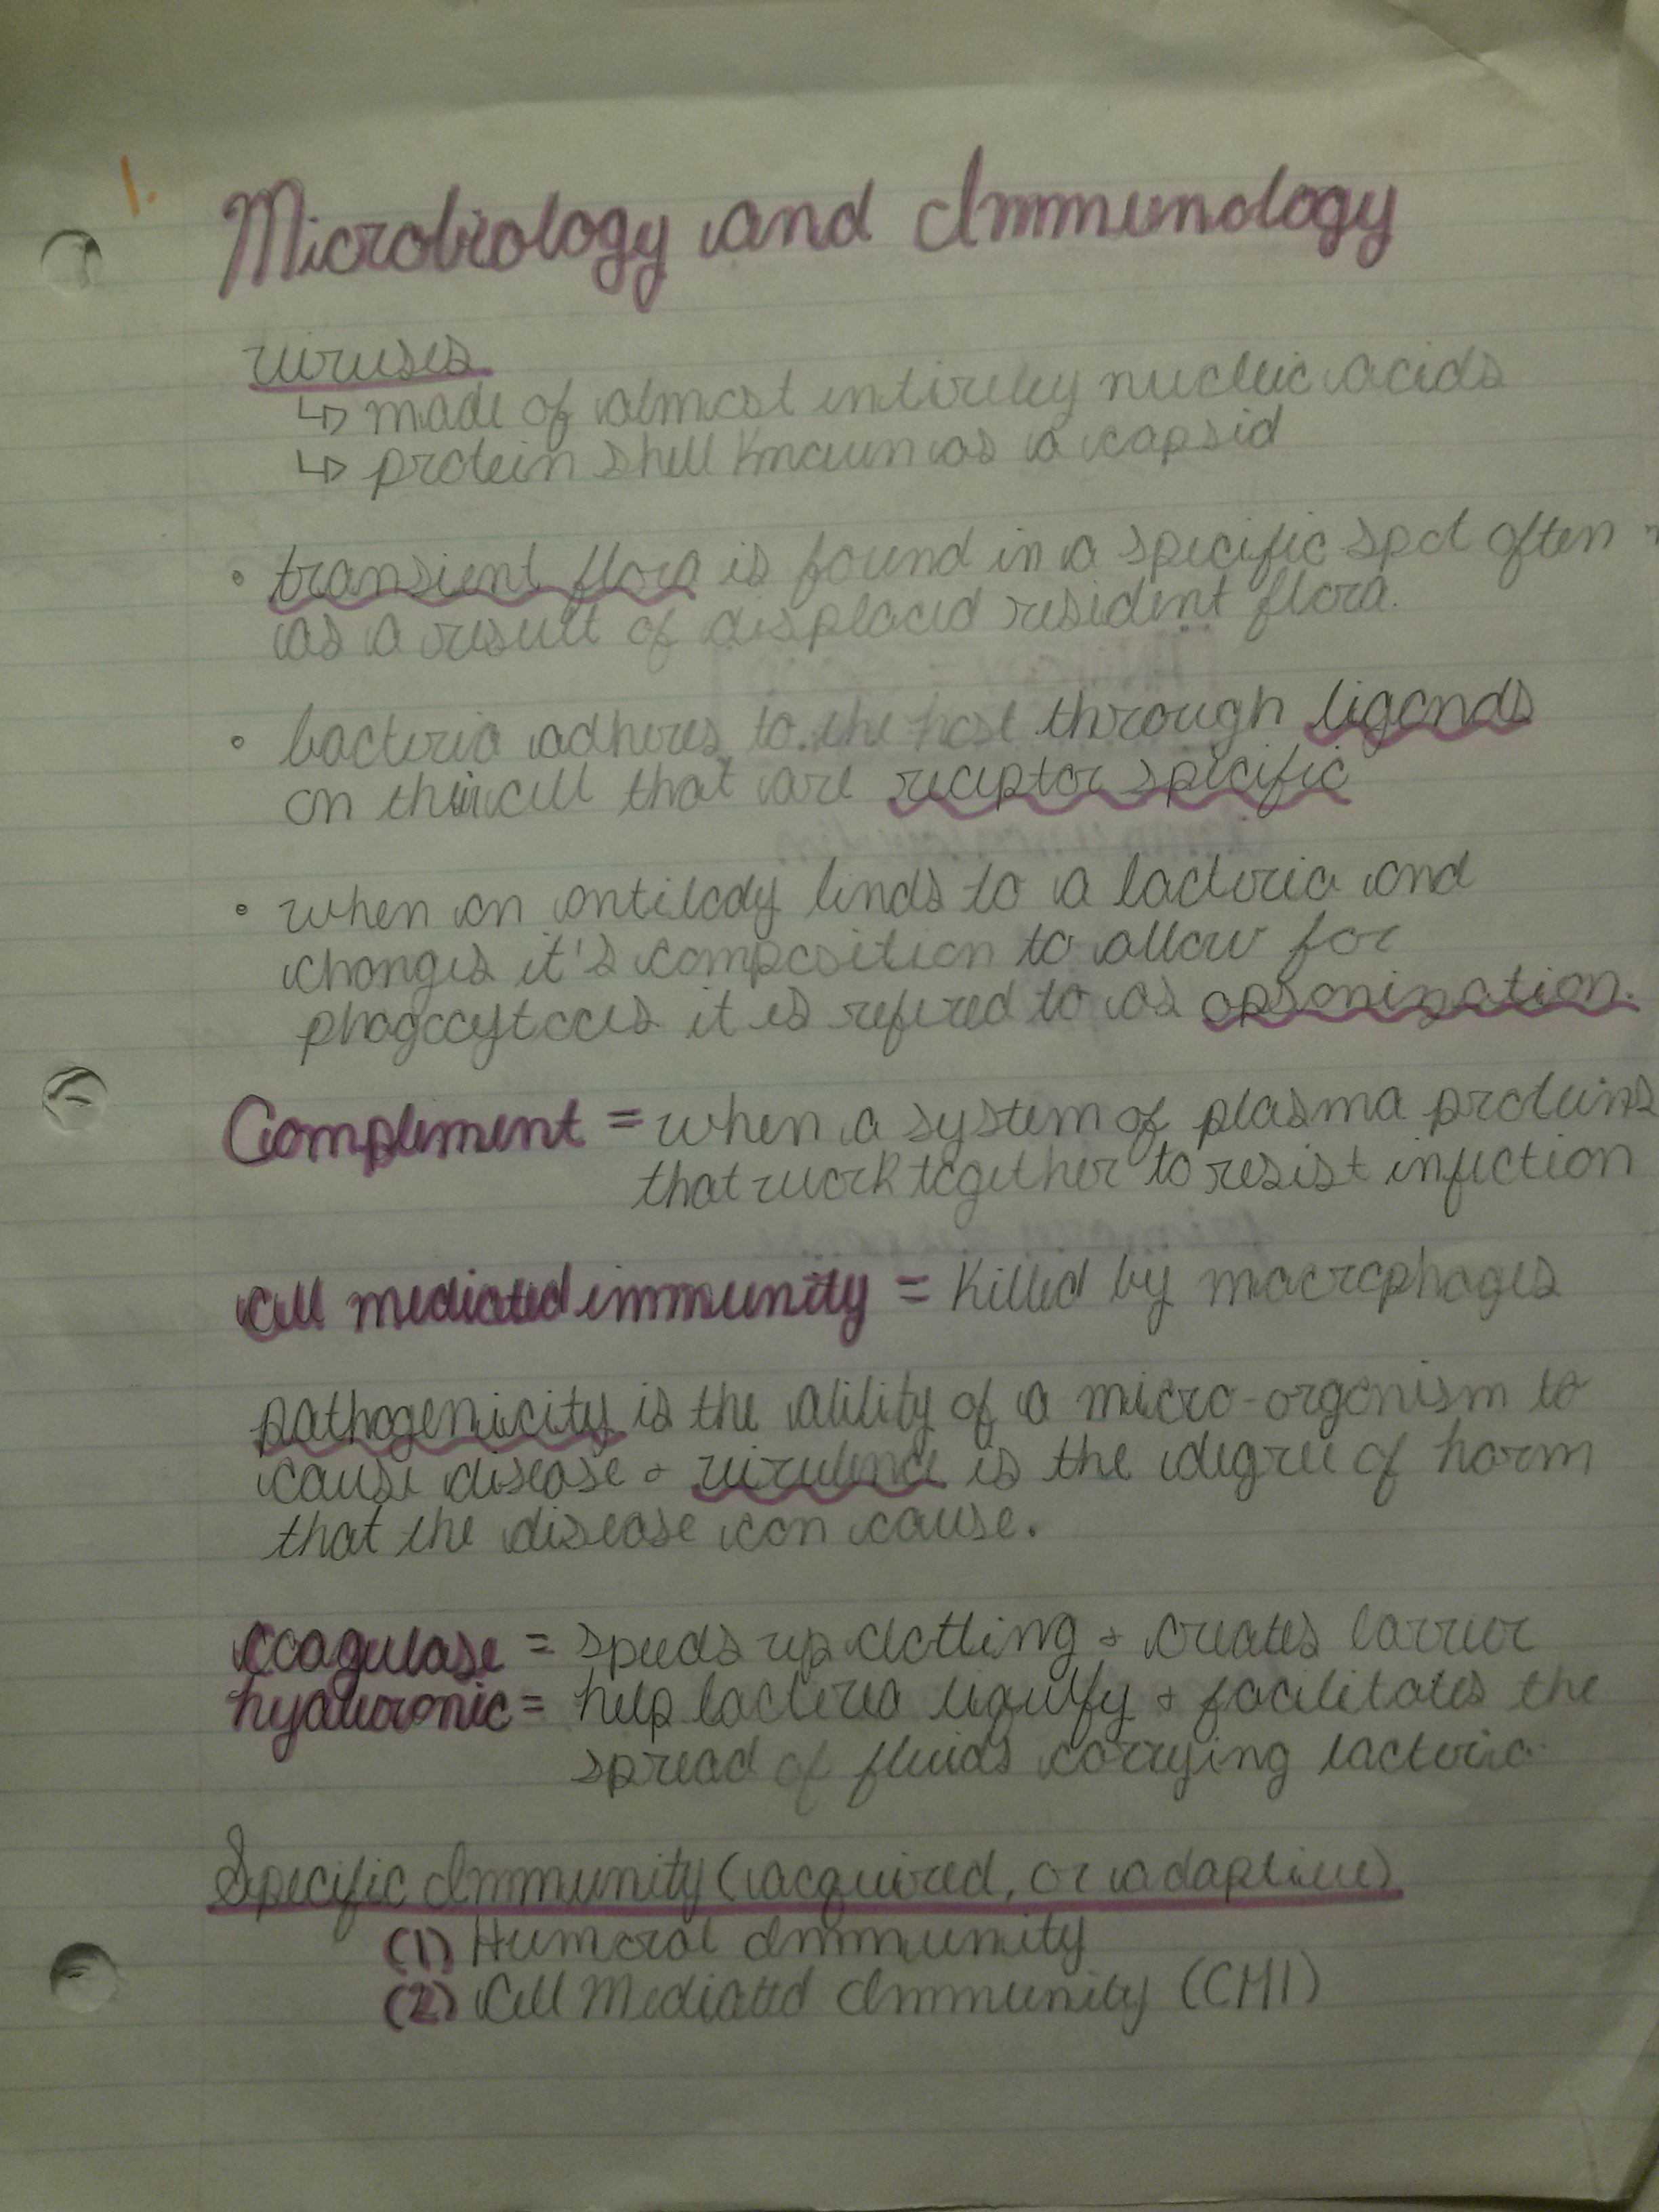 1.
Microbiology and Immunology
viruses
↳ made of almost entireley nucleic acids
↳ protein shell known as a capsid
• transient flora is found in a specific spot often
as a result of displaced resident flora.
• bacteria adheres to the host through ligands
on their cell that are receptor specific
• when an antibody binds to a bacteria and
changes it's composition to allow for
phagocytoces it is refered to as opsonization.
Compliment = when a system of plasma proteins
that work together to resist infection
cell mediated immunity = killed by macrophages
pathogenicity is the ability of a micro-organism to
cause disease & virulence is the degree of harm
that the disease can cause.
coagulase = speeds up clotting & creates barrier
hyaluronic = help bacteria liquify & facilitates the
spread of fluids carrying bacteria.
Specific Immunity (acquired, or adaptive)
(1) Humoral Immunity
(2) Cell Mediated Immunity (CMI)